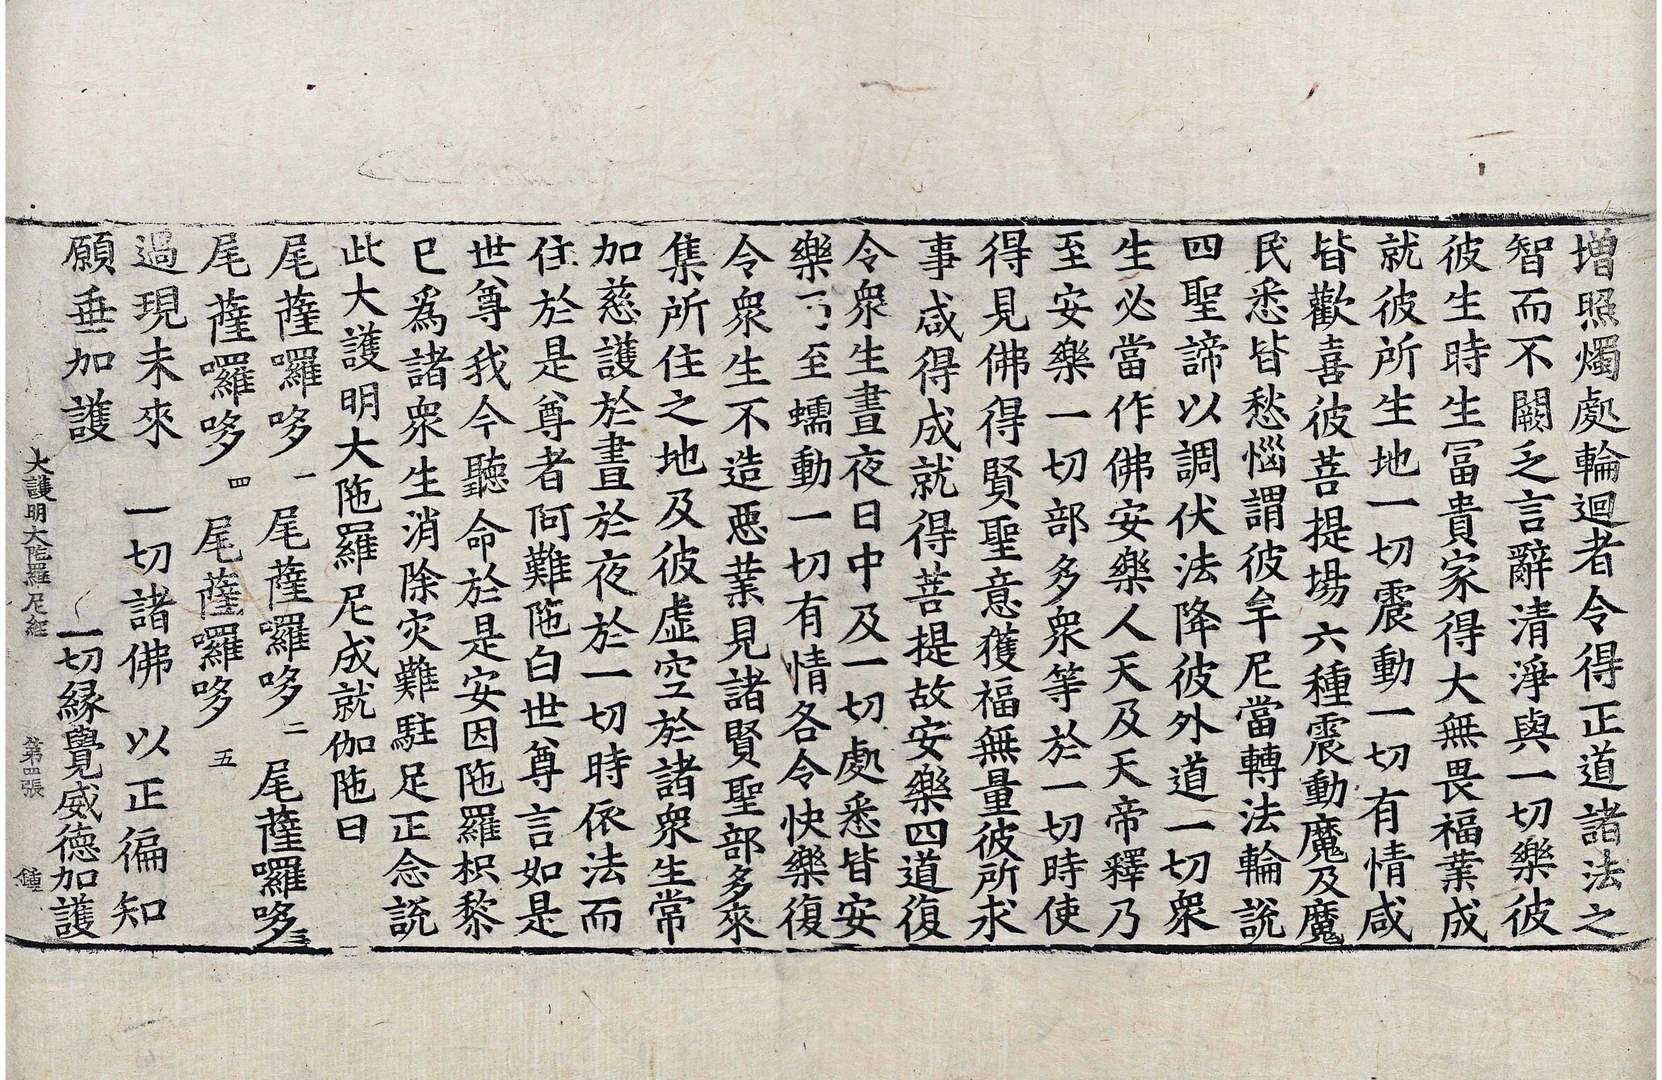 增照燭處輪迴者令得正道諸法之
智而不闕乏言辭清淨與一切樂彼
彼生時生冨貴家得大無畏福業成
就彼所生地一切震動一切有情咸
皆歡喜彼菩提場六種震動魔及魔
民悉皆愁惱謂彼牟尼當轉法輪說
四聖諦以調伏法降彼外道一切衆
生必當作佛安樂人天及天帝釋乃
至安樂一切部多衆等於一切時使
得見佛得賢聖意獲福無量彼所求
事咸得成就得菩提故安樂四道復
令衆生晝夜日中及一切處悉皆安
樂乃至蠕動一切有情各令快樂復
令衆生不造惡業見諸賢聖部多來
集所住之地及彼虛空於諸衆生常
加慈護於晝於夜於一切時依法而
住於是尊者阿難陁白世尊言如是
世尊我今聽命於是安因陁羅枳黎
已爲諸衆生消除灾難駐足正念說
此大護明大陁羅尼成就伽陁曰
尾薩囉哆 一 尾薩囉哆 二 尾薩囉哆 三
尾薩囉哆 四 尾薩囉哆 五
過現未來 一切諸佛 以正徧知
願垂加護 一切緣覺威德加護
大護明大陁羅尼經 第四張 鍾